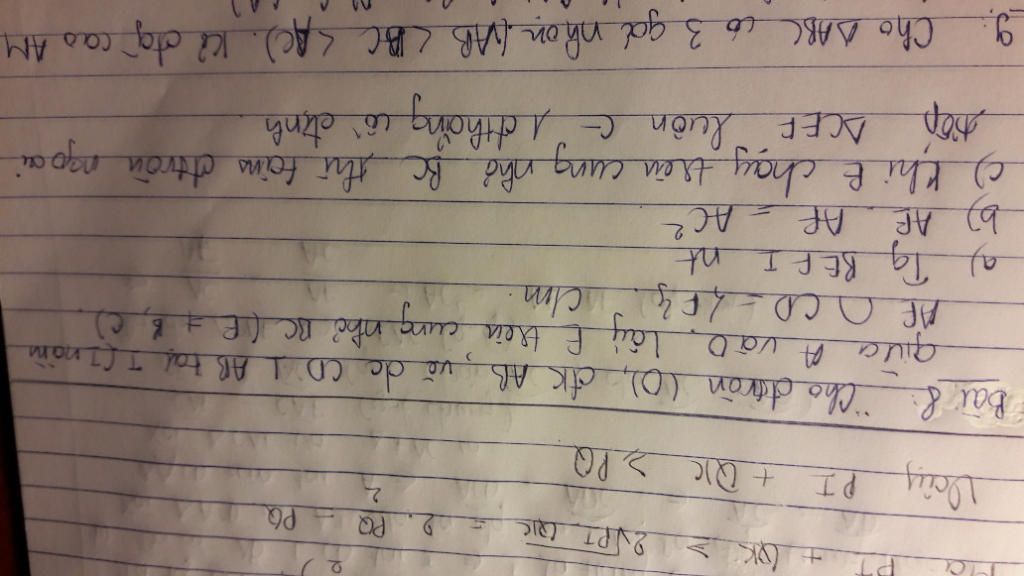 PI + QK ≥ 2√PI.QK = 2. PQ/2 = PQ
Vậy PI + QK ≥ PQ
Bài 8: Cho đtròn (O), đk AB, vẽ dc CD ⊥ AB tại I (I nằm
giữa A và O. Lấy E trên cung nhỏ BC (E ≠ B, C).
AE ∩ CD = {F}. Cm.
a) Tg BEFI nt
b) AE. AF = AC²
c) Khi E chạy trên cung nhỏ BC thì tâm đtròn ngoại
tiếp ΔCEF luôn ∈ 1 đthẳng cố định.
9: Cho ΔABC có 3 góc nhọn (AB < BC < AC). Kẻ đg cao AM